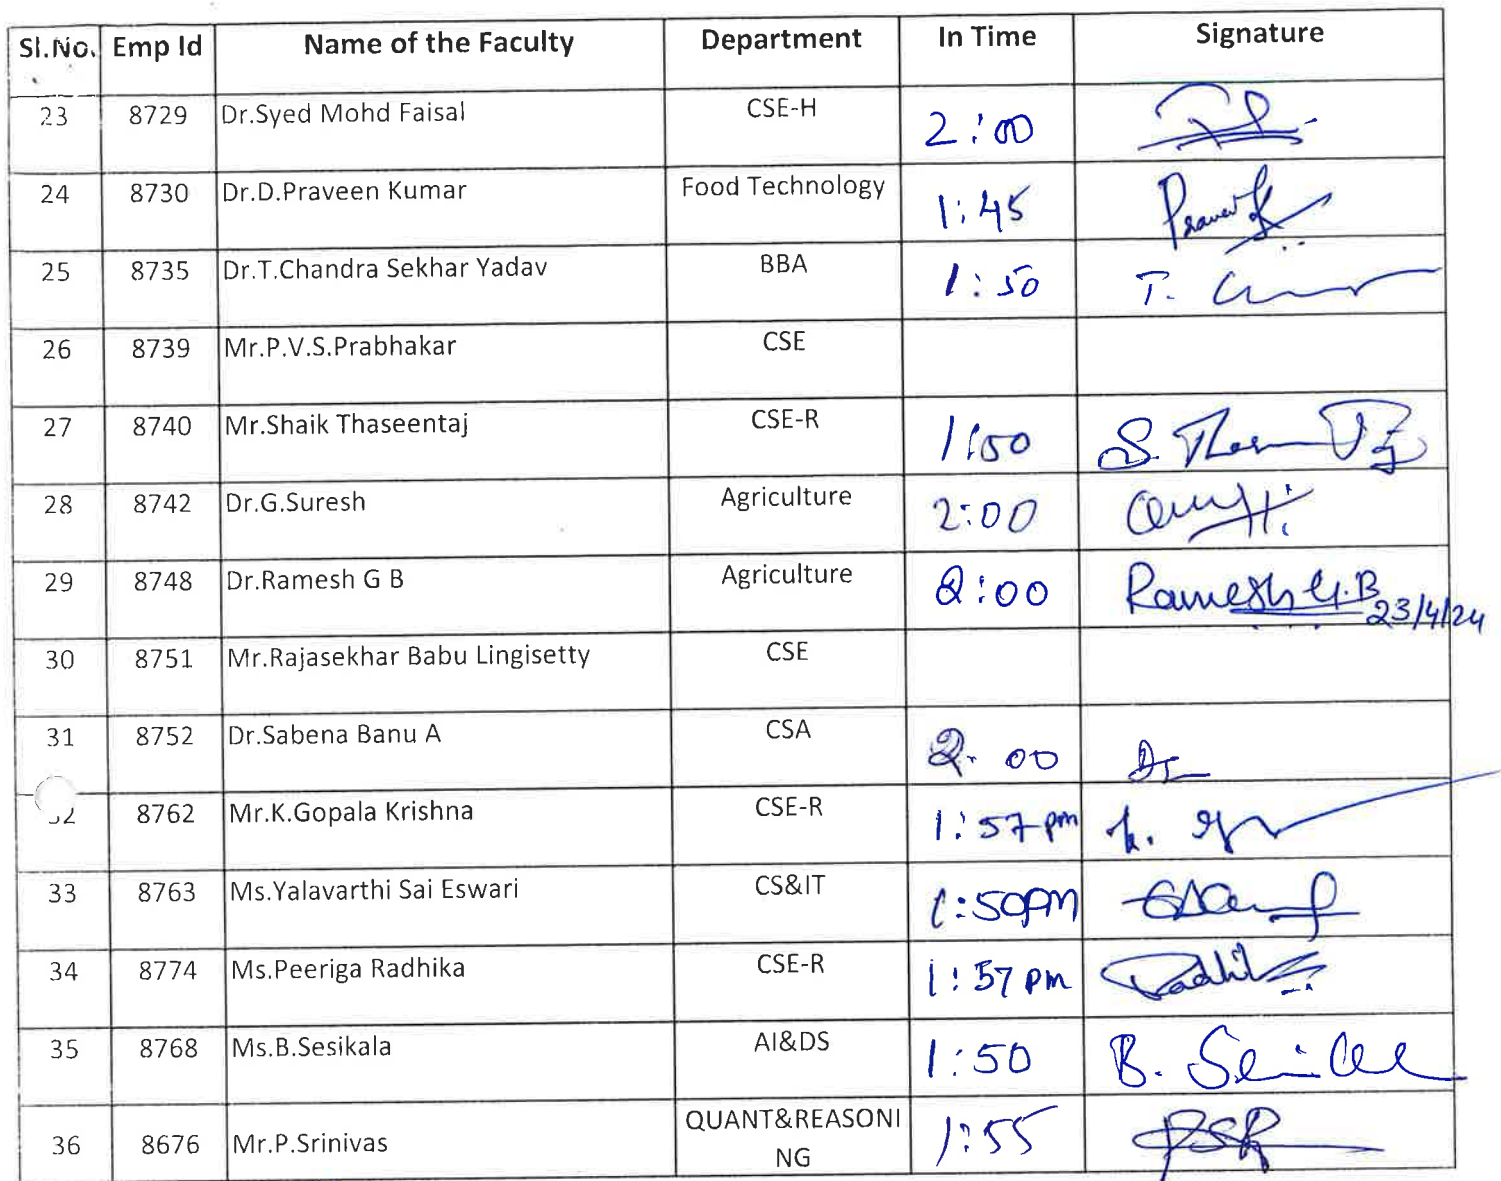 Sl.No. Emp Id Name of the Faculty Department In Time Signature
23 8729 Dr.Syed Mohd Faisal CSE-H 2:00
24 8730 Dr.D.Praveen Kumar Food Technology 1:45
25 8735 Dr.T.Chandra Sekhar Yadav BBA 1:50 T.
26 8739 Mr.P.V.S.Prabhakar CSE
27 8740 Mr.Shaik Thaseentaj CSE-R 1:50 S.
28 8742 Dr.G.Suresh Agriculture 2:00
29 8748 Dr.Ramesh G B Agriculture 2:00 Ramesh G.B
23/4/24
30 8751 Mr.Rajasekhar Babu Lingisetty CSE
31 8752 Dr.Sabena Banu A CSA 2.00
8762 Mr.K.Gopala Krishna CSE-R 1:57 pm k.
33 8763 Ms.Yalavarthi Sai Eswari CS&IT 1:50PM
34 8774 Ms.Peeriga Radhika CSE-R 1:57 pm
35 8768 Ms.B.Sesikala AI&DS 1:50 B.
36 8676 Mr.P.Srinivas QUANT&REASONI 1:55
NG